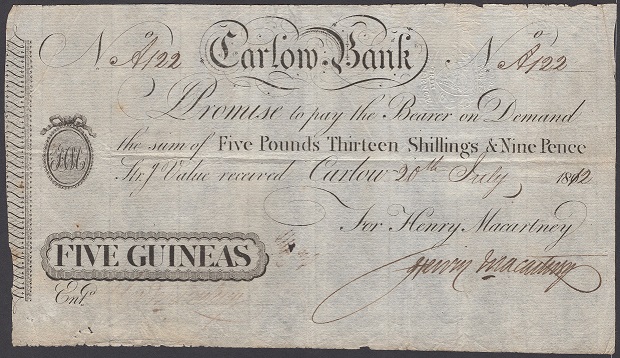 No A/122 Carlow Bank No A/122
I Promise to pay the Bearer on Demand
the sum of Five Pounds Thirteen Shillings & Nine Pence
Str.g Value received Carlow 20th July 1812
For Henry Macartney
FIVE GUINEAS
Macartney
Entd